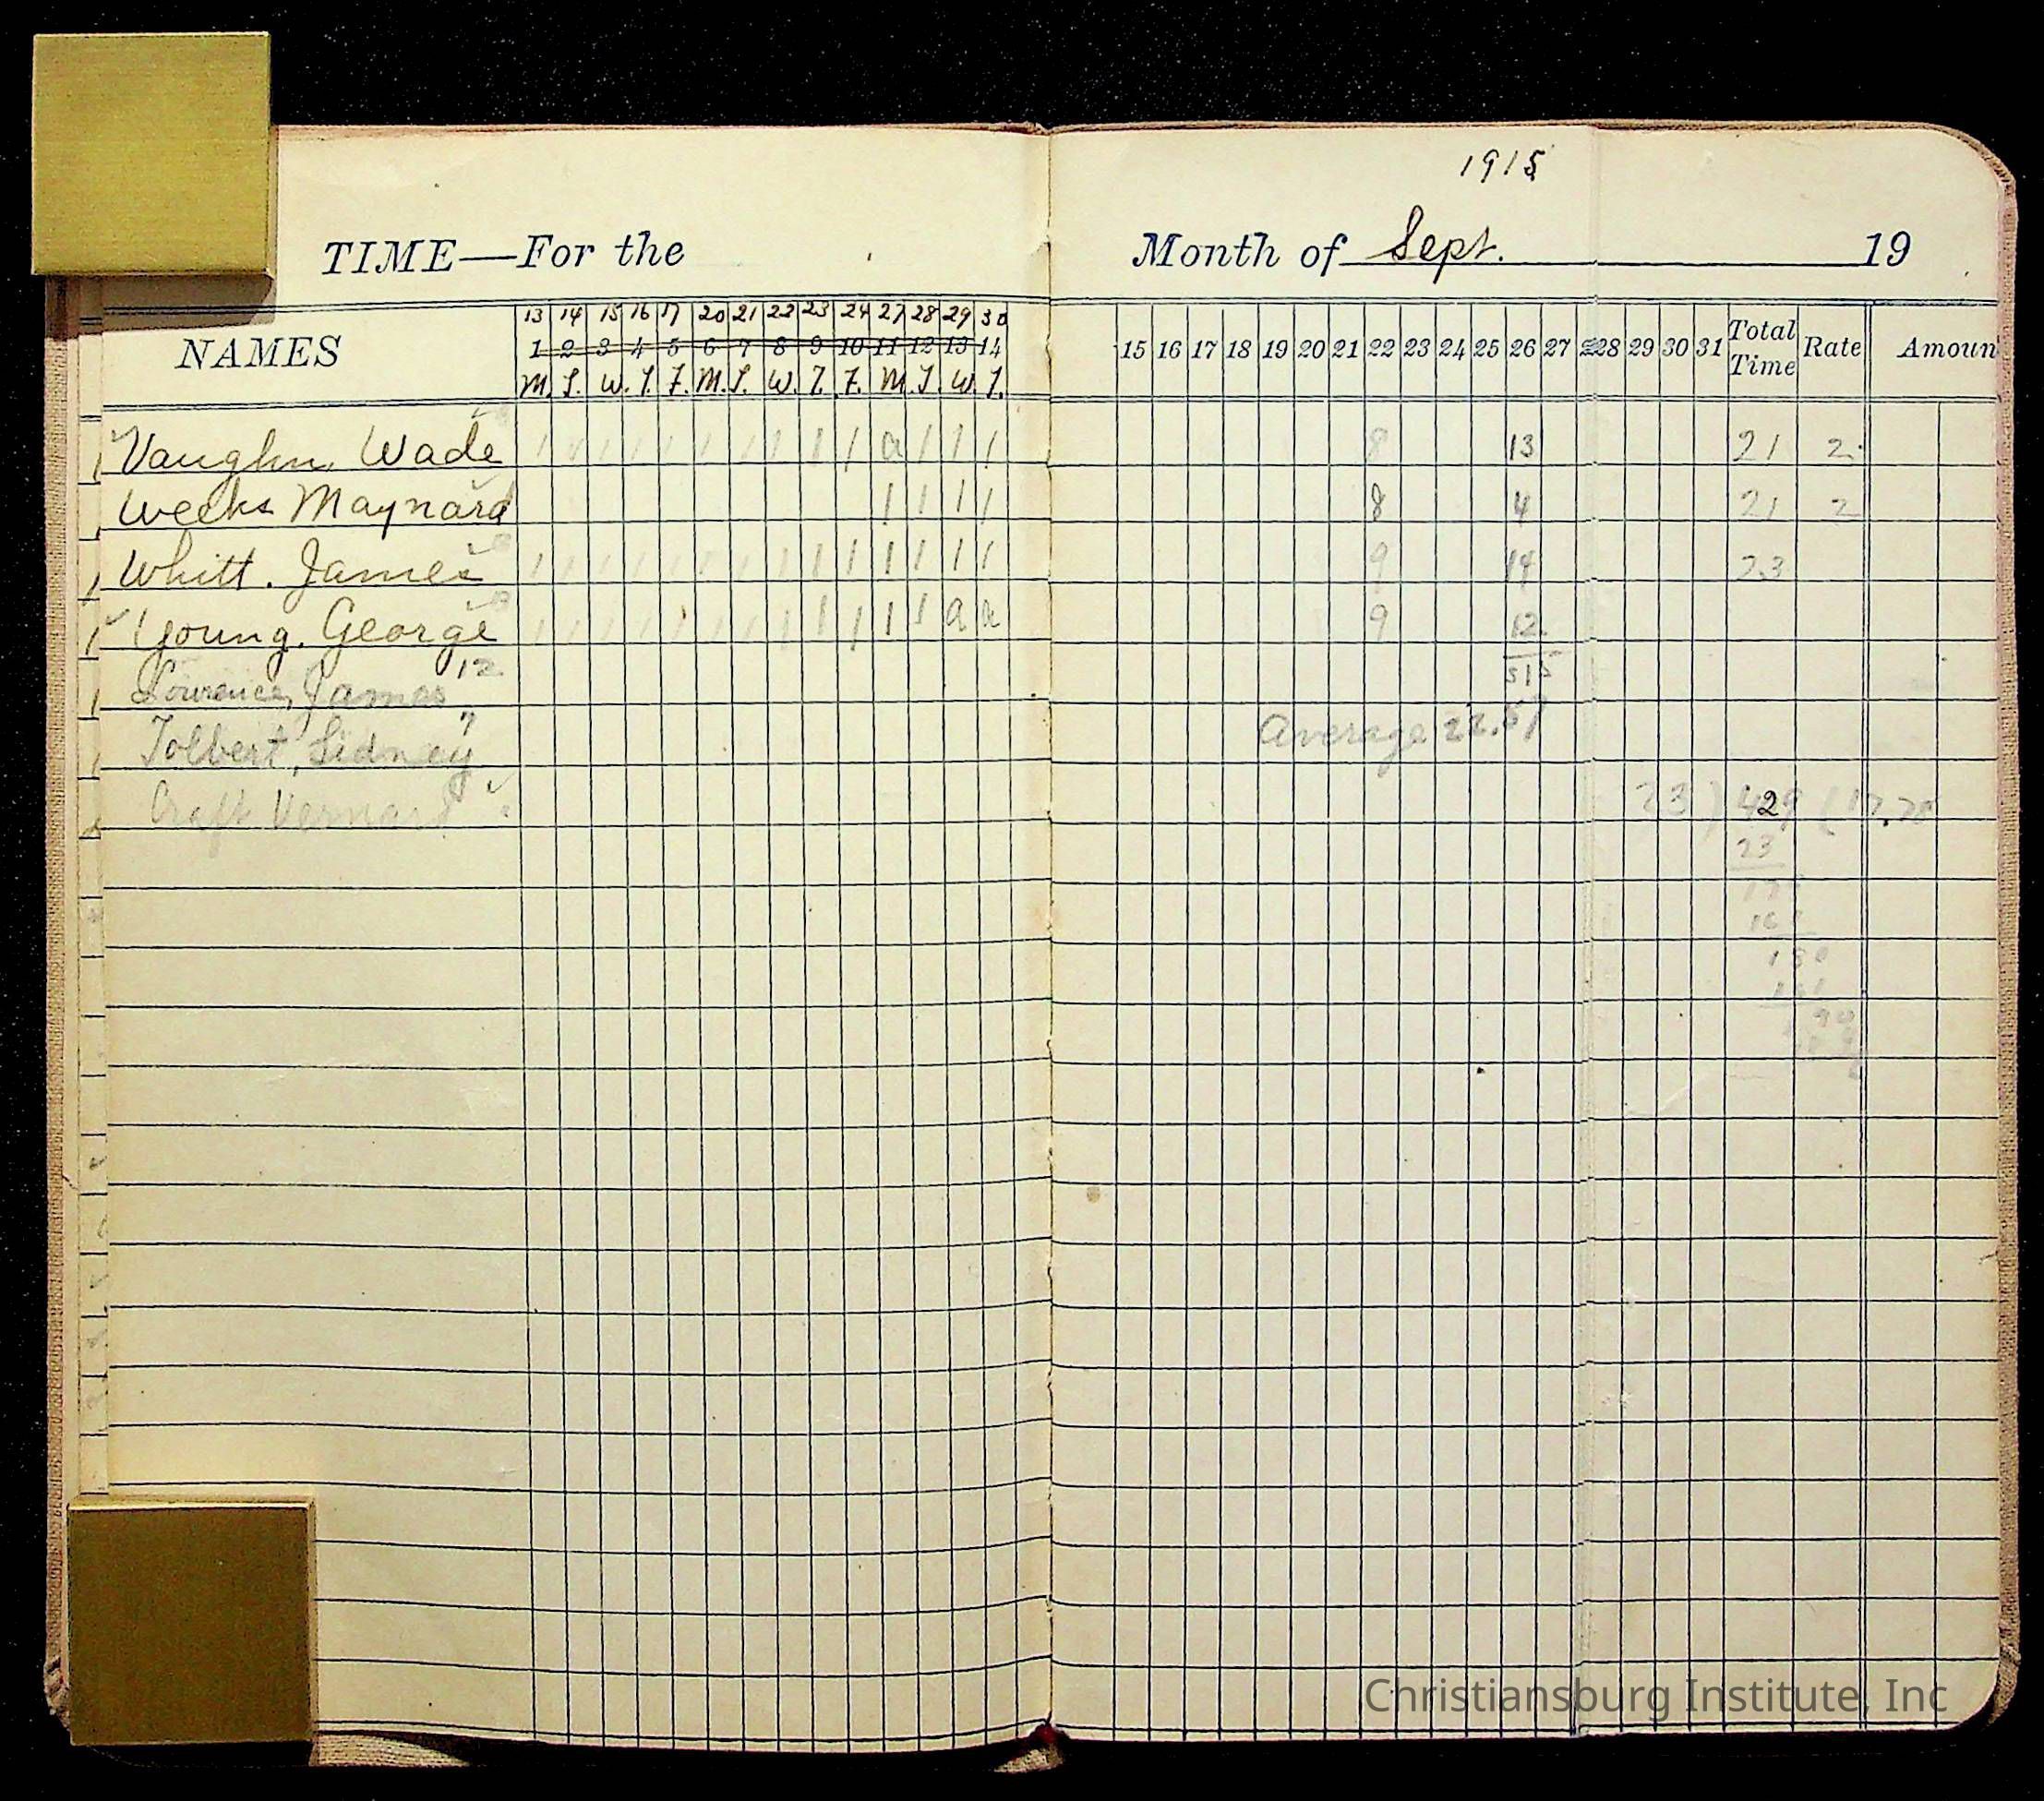 1915
TIME—For the Month of Sept. 19
13 14 15 16 17 20 21 22 23 24 27 28 29 30
NAMES 1 2 3 4 5 6 7 8 9 10 11 12 13 14 15 16 17 18 19 20 21 22 23 24 25 26 27 28 29 30 31 Total Time Rate Amoun
M. T. W. T. F. M. T. W. T. F. M. T. W. T.
Vaughn, Wade 1 1 1 1 1 1 1 1 1 1 a 1 1 1 8 13 21 2
Weeks Maynard 1 1 1 1 8 4 21 2
Whitt. James 1 1 1 1 1 1 1 1 1 1 1 1 1 1 9 14 23
Young. George 1 1 1 1 1 1 1 1 1 1 1 1 a a 9 12
Lowrence, James 12 515
Tolbert, Sidney 7 Average 22.51
Craft Vernard 23 ) 429 (
23
Christiansburg Institute, Inc